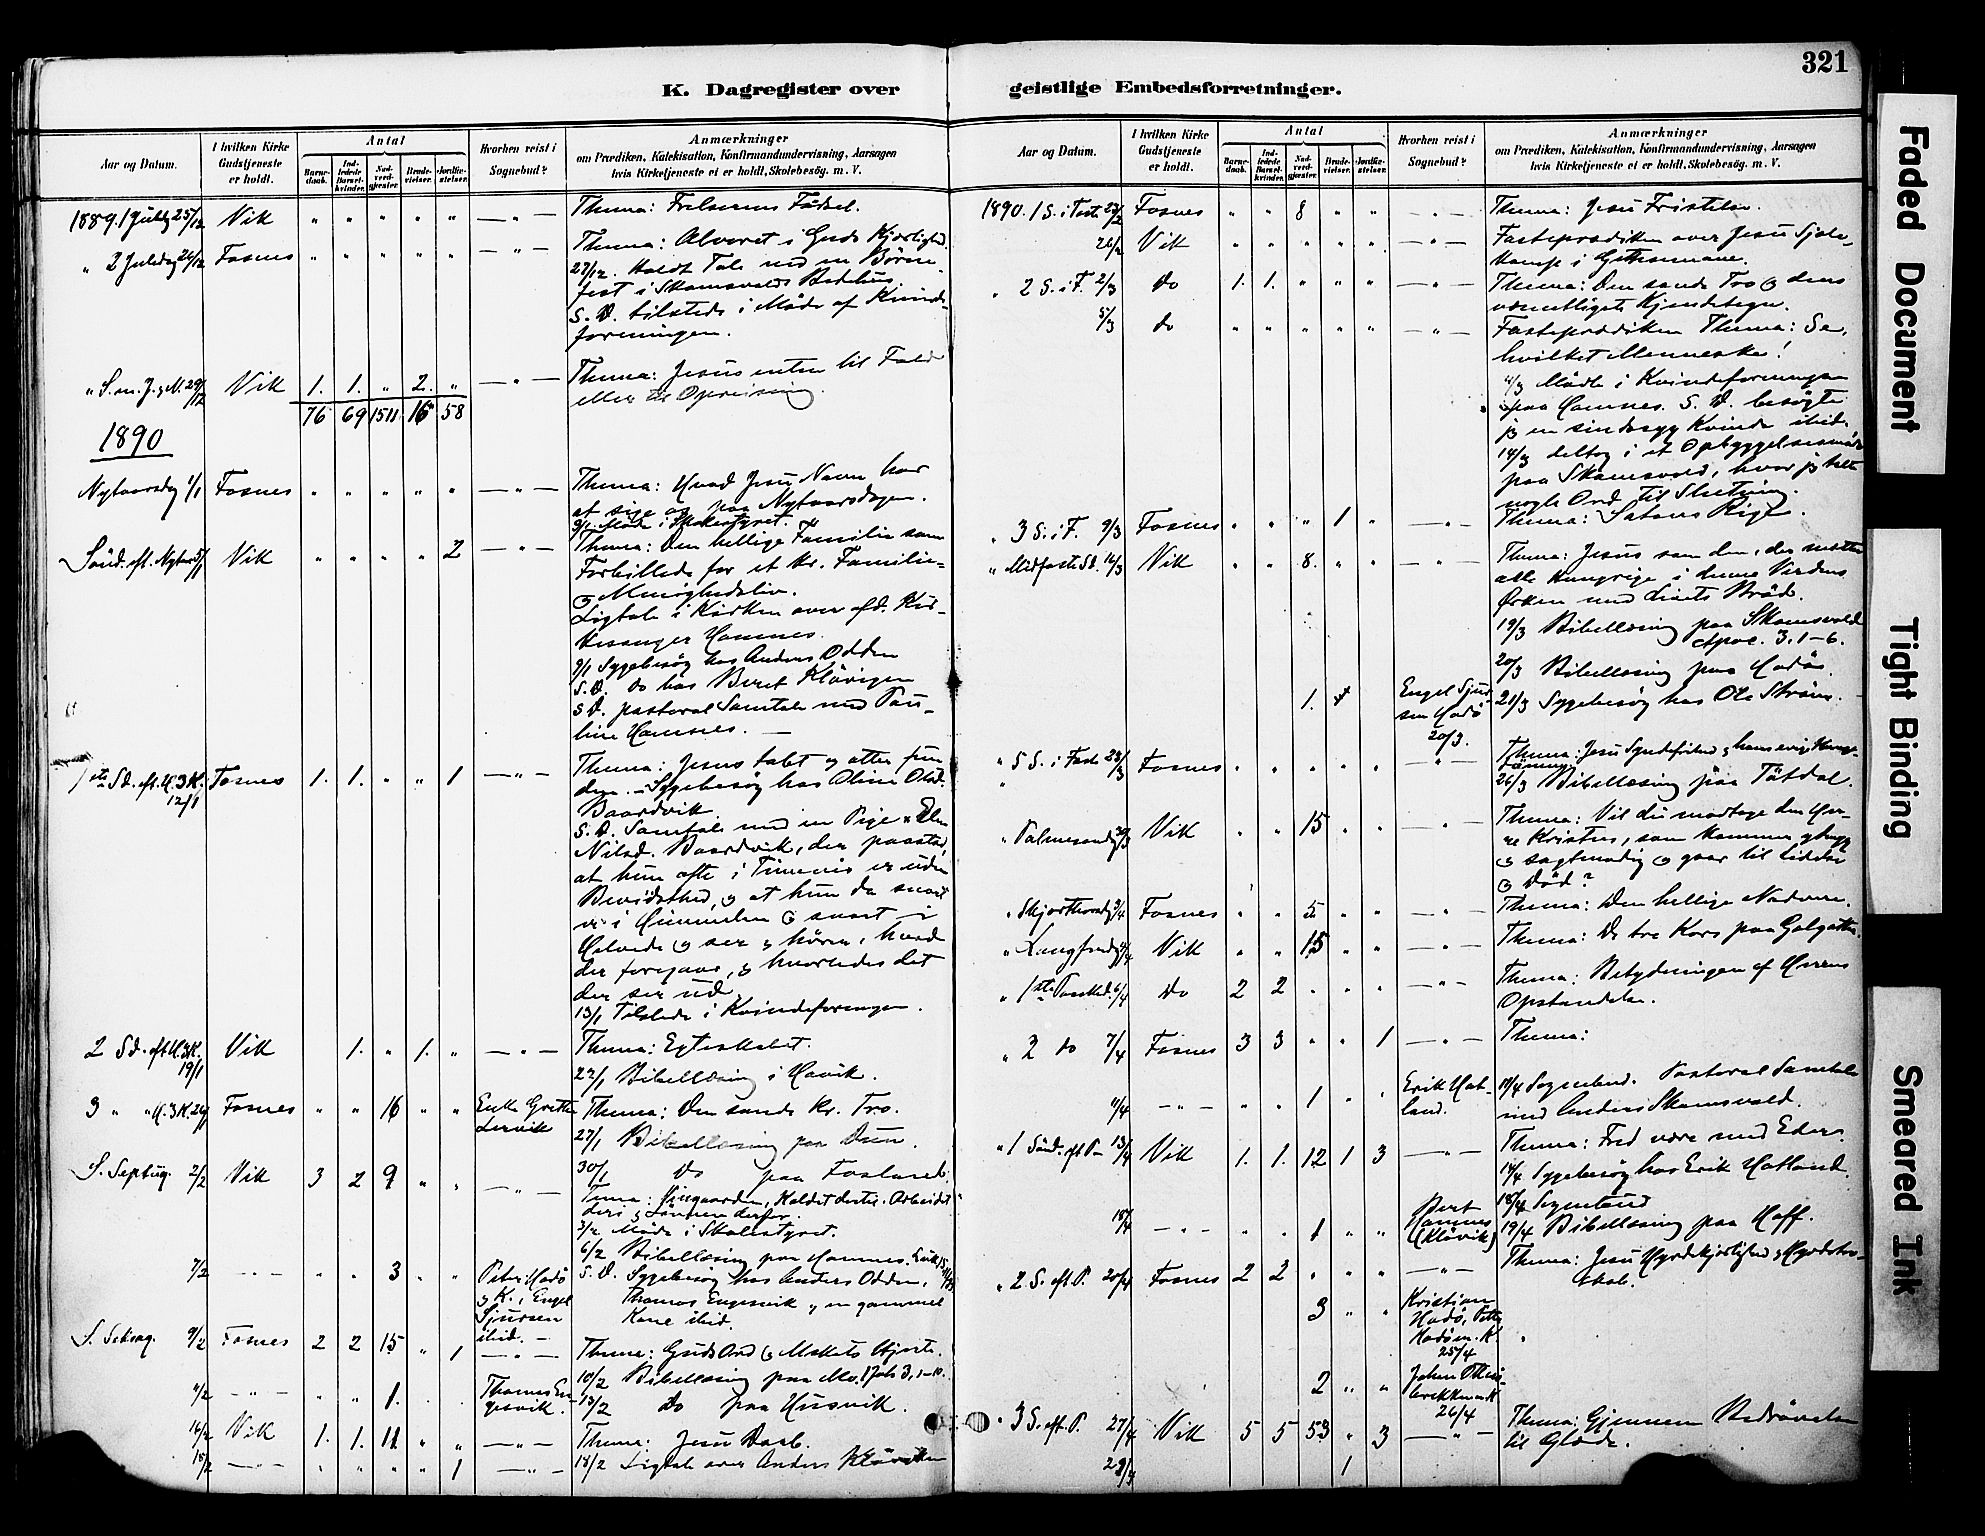 321
K. Dagregister over
geistlige Embedsforretninger.
Aar og Datum.
I hvilken Kirke
Gudstjeneste
er holdt.
Antal
Barne-
daab.
Ind-
ledede
Barsel-
kvinder.
Nad-
verd-
gjæster.
Brude-
vielser.
Jordfæ-
stelser.
Hvorhen reist i
Sognebud?
Anmærkninger
om Prædiken, Katekisation, Konfirmandundervisning, Aarsagen
hvis Kirketjeneste ei er holdt, Skolebesög. m. V.
1889. 1 Juledg 25/12 Vik " " " " " — " — Thema: Frelserens Fødsel.
" 2 Juledag 26/12 Fosnes " " " " " — " — Thema: Alvoret i Guds Kjærlighed.
27/12. Holdt Tale ved en Børne-
fest i Skomsvolds Bedehus
S. D. tilstede i Møde af Kvinde-
foreningen.
" S. m. J. & N. 29/12 Vik 1. 1. " 2. " — " — Thema: Jesus enten til Fald
eller til Opreisning.
76 69 1511 16 58
1890
Nytaarsdag 1/1 Fosnes " " " " " — " — Thema: Hvad Jesu Navn har
at sige os paa Nytaarsdagen.
Møde i Skolestyret.
Sönd. eft. Nytaar 5/1 Vik " " " " 2 — " — Thema: Den hellige Familie som
Forbillede for et kr. Familie-
& Menighedsliv.
Ligtale i Kirken over afd. Kir-
kesanger Hamnes.
9/1 Sygebesøg hos Anders Odden
S. D. do hos Beret Kløvigen
S D. pastoral Samtale med Pau-
line Hamnes. —
1ste Sd. eft. H. 3 K. 12/1 Fosnes 1. 1. " " 1 — " — Thema: Jesus tabt og atter fun-
den. — Sygebesøg hos Oline Olsd.
Baardvik
S. D. Samtale med en Pige Elen
Nilsd. Baardvik, der paastaar,
at hun ofte i Timevis er uden
Bevidsthed, & at hun da snart
er i Himmelen & snart i
Helvede & ser & hører, hvad
der foregaar, & hvorledes det
der ser ud.
13/1 Tilstede i Kvindeforeningen.
2 Sd. eft H. 3 K. 19/1 Vik 1. " 1. " — " — Thema: Egteskabet.
22/1 Bibellæsning i Havik.
3 " " H. 3 K. 26/1 Fosnes " " 16 " " Enke Grethe
Lervik Thema: Den sande kr. Tro.
27/1 Bibellæsning paa Duun.
30/1 do paa Fosland.
S. Septuag. 2/2 Vik 3 2 9 " " — " — Tema: Vingaarden, Kaldet dertil, Arbeidet
deri & Lønnen derfor.
3/2 Møde i Skolestyret.
6/2 Bibellæsning paa Hamnes.
7/2 — " — " " 3 " " Peter Hadö
& K., Engel
Sjursen
ibid. — S. D. Sygebesøg hos Anders Odden,
Thomas Engesvik & en gammel
Kone ibid.
S. Seksag. 9/2 Fosnes 2 2 15 " 1 — " — Thema: Guds Ord & Mskets Hjerte.
10/2 Bibellæsning paa Mo. 1 Joh 3, 1-10.
11/2 — " — " " 1. Thomas En-
gesvik. 13/2 Do paa Husvik.
16/2 Vik 1. 1. 11 " " — " — Thema: Jesu Daab.
18/2 — " — " " " " 1 — " — 18/2 Ligtale over Anders Kløvigen
Aar og Datum.
I hvilken Kirke
Gudstjeneste
er holdt.
Antal
Barne-
daab.
Ind-
ledede
Barsel-
kvinder.
Nad-
verd-
gjæster.
Brude-
vielser.
Jordfæ-
stelser.
Hvorhen reist i
Sognebud?
Anmærkninger
om Prædiken, Katekisation, Konfirmandundervisning, Aarsagen
hvis Kirketjeneste ei er holdt, Skolebesög. m. V.
1890. 1 S. i Faste 23/2 Fosnes " " 8 " " — " — Thema: Jesu Fristelse.
26/2 Vik " " " " " — " — Fasteprædiken over Jesu Sjæle-
kamp i Gethsemane.
" 2 S. i F. 2/3 Do 1. 1. " " " — " — Thema: Den sande Tro & dens
væsentligste Kjendetegn.
5/3 do " " " " " — " — Fasteprædiken Thema: Se,
hvilket Menneske!
Møde i Kvindeforeningen
paa Hamnes. S. D. besøgte
jeg en sindssyg Kvinde ibid.
14/3 deltog i et Opbyggelsesmøde
paa Skomsvold, hvor jeg talte
nogle Ord til Slutning.
" 3 S. i F. 9/3 Fosnes " " " 1 " — " — Thema: Satans Rige.
" Midfaste Sd. 16/3 Vik " " 8. " " — " — Thema: Jesus som den, der mætter
alle hungrige i denne Verdens
Ørken med Livets Brød.
19/3 Bibellæsning paa Skomsvold
Apoc. 3. 1–6.
20/3 Bibellæsning paa Hadö.
1. Engel Sjur-
sen Hadö
20/3. 21/3 Sygebesøg hos Ole Strøm.
" 5 S. i Faste 23/3 Fosnes " " " " " — " — Thema: Jesu Syndefrihed &
26/3 Bibellæsning paa Tötdal.
" Palmesøndag 30/3 Vik " " 15 " " — " — Thema: Vil du modtage den Her-
re Kristus, som kommer ydmyg
& sagtmodig & gaar til Lidelse
& Død?
" Skjærthorsdg 3/4 Fosnes " " 5 " " — " — Thema: Den hellige Nadvere.
" Langfredg 4/4 Vik " " 15 " " — " — Thema: De tre Kors paa Golgatha.
" 1ste Paaskd. 6/4 Do 2 2 " " " — " — Thema: Betydningen af Herrens
Opstandelse.
" 2 do 7/4 Fosnes 3 3 " " 1 — " — Thema:
11/4 — " — " " 1 " " Erik Hat-
land. 11/4 Sognebud. Pastoral Samtale
med Anders Skomsvold.
" 1 Sönd. eft P. 13/4 Vik 1. 1. 12 1 3 — " — Thema: Fred være med Eder.
14/4 Sygebesøg hos Erik Hatland.
18/4 — " — " " 1 " " Beret
Hamnes
(Kløvik) 18/4 Sognebud
19/4 Bibellæsning paa Hoff.
" 2 S. eft P. 20/4 Fosnes 2 2 " " " — " — Thema: Jesu Hyrdekjærlighed & Hyrdetro-
skab.
3 " " Kristian
Hadö, Petter
Hadö m. K.
25/4
2 " " Johan
26/4
" 3 S. eft. P. 27/4 Vik 5 5 53 " 3 — " — Thema: Gjennem Bedrøvelse
til Glæde.
1
Faded Document
Tight Binding
Smeared Ink